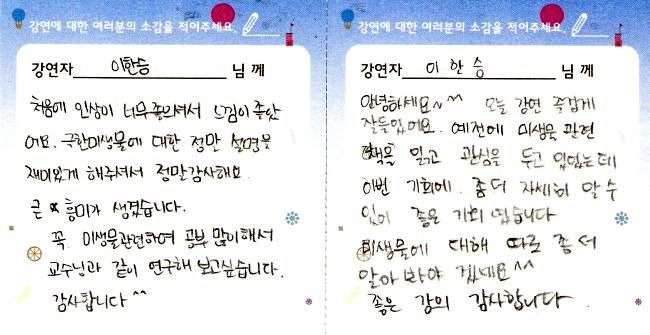 강연에 대한 여러분의 소감을 적어주세요.
강연자 이한승 님께
처음에 인상이 너무좋으셔서 느낌이 좋았
어요. 극한미생물에 대한 정말 설명을
재미있게 해주셔서 정말감사해요.
큰 흥미가 생겼습니다.
꼭 미생물관련하여 공부 많이해서
교수님과 같이 연구해 보고싶습니다.
감사합니다^^
강연에 대한 여러분의 소감을 적어주세요.
강연자 이한승 님께
안녕하세요~^^ 오늘 강연 즐겁게
잘들었어요. 예전에 미생물 관련
책을 읽고 관심을 두고 있었는데
이번 기회에 좀더 자세히 알 수
있어 좋은 기회 였습니다
미생물에 대해 따로 좀 더
알아 봐야 겠네요^^
좋은 강의 감사합니다.